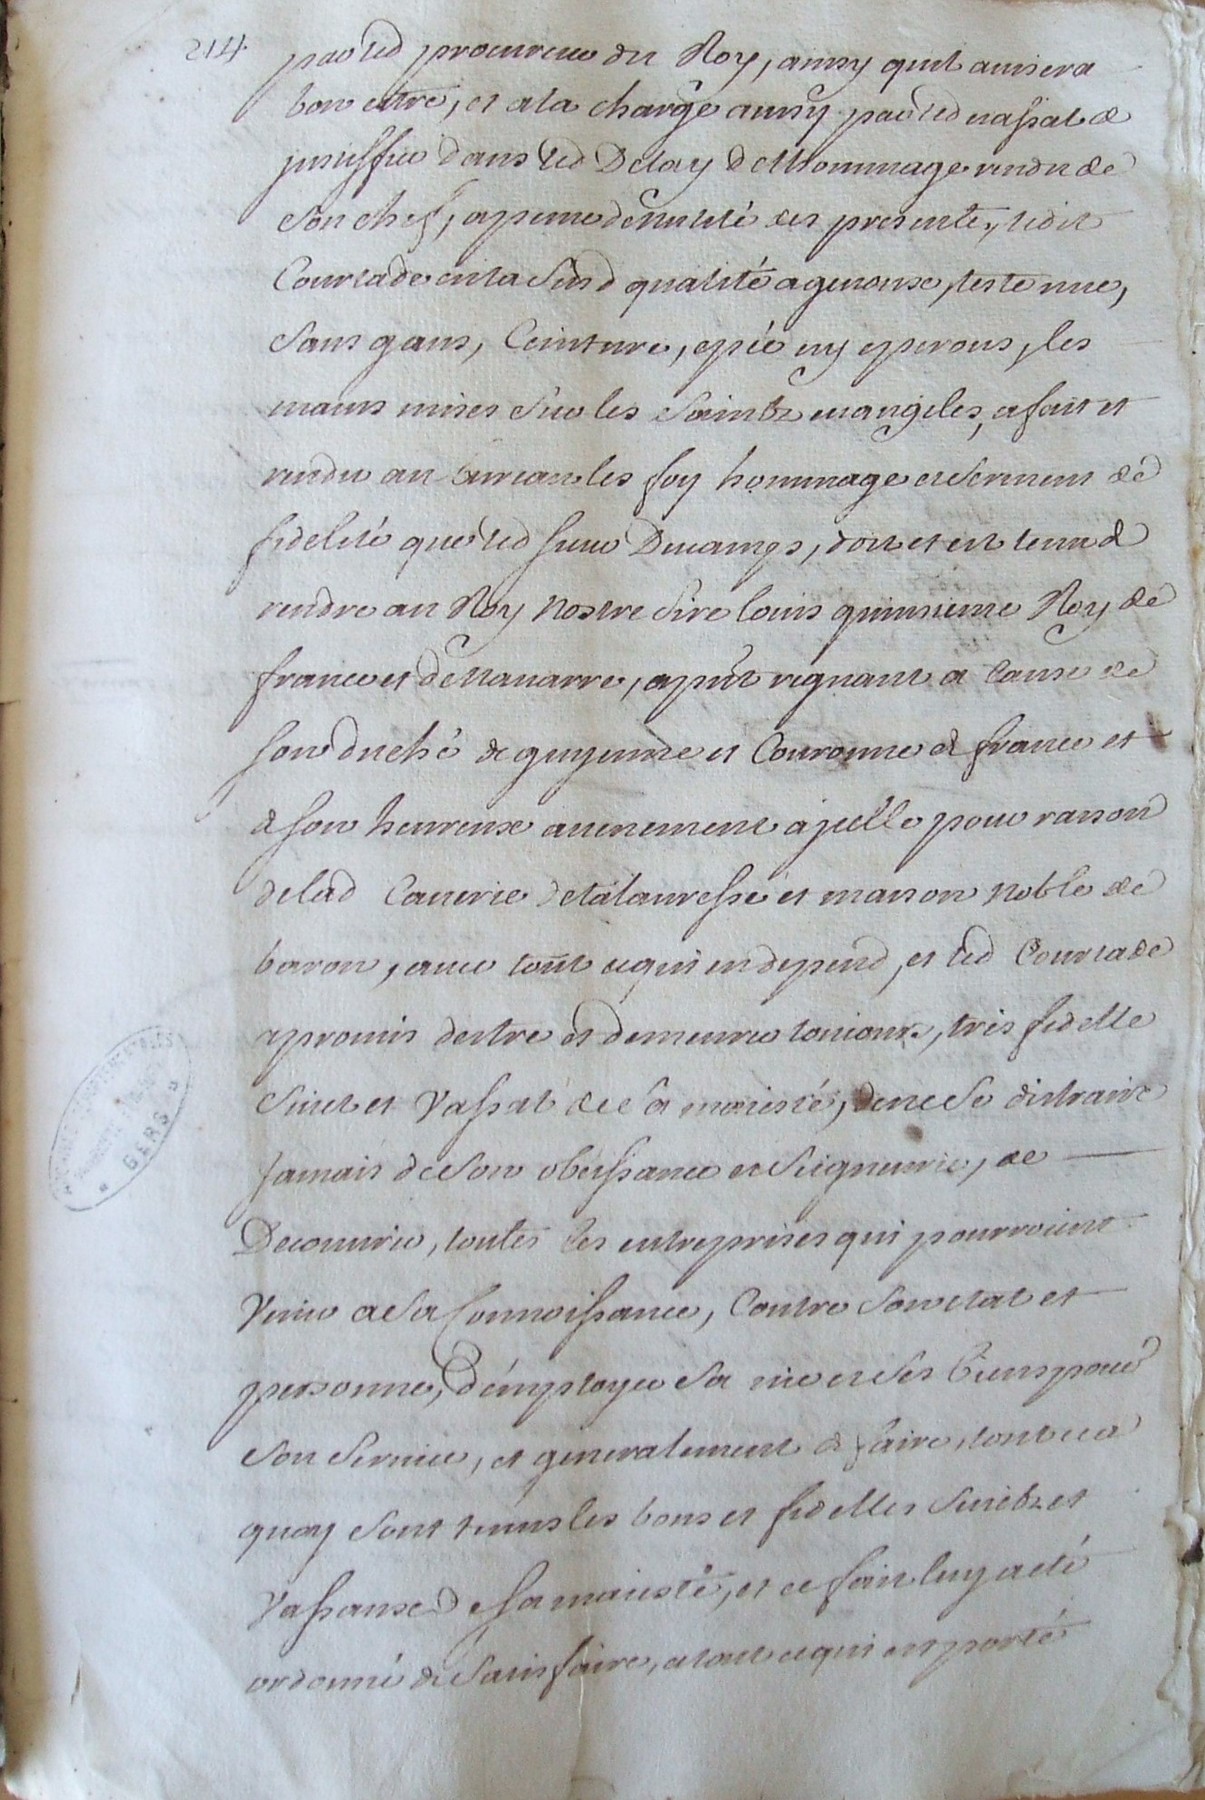 214.
par led procureur du Roy, ainsy quil avisera
bon estre, et a la charge aussy par led vassal de
justiffier dans led Delay de lhommage rendu de
Son chef, a peine de nullité des presentes, ledit
Courtade en lad qualité a genoux, teste nue,
Sans gans, Ceinture, epée ny eperons, les
mains mises Sur les Saints evangiles, a fait et
rendu au bureau les foy hommage et serment de
fidelité que led Sieur Ducamps, doit et est tenu de
rendre au Roy Nostre Sire louis quinsieme Roy de
france et de Navarre, a pnt regnant a Cause de
Son duché de guyenne et Couronne de france et
de Son heureux avenement a jcelle pour raison
de lad Caverie de talauresse et maison Noble de
baron, avec tout ce qui en depend, et led Courtade
a promis destre et demeurer toujours, tres fidelle
Sujet et Vassal de Sa majesté, de ne Se distraire
Jamais de Son obeissance et Seigneurie, de
Decouvrir, toutes les entreprises qui pourroient
Venir a Sa Connoissance, Contre Son etat et
personne, d'employer Sa vie et Ses biens pour
Son Service, et generalement de faire, tout ce a
quoy Sont tenus les bons et fidelles Sujets et
Vassaux de Sa majesté, et ce fait luy a eté
ordonné de Satisfaire, a tout ce qui est porté
GERS